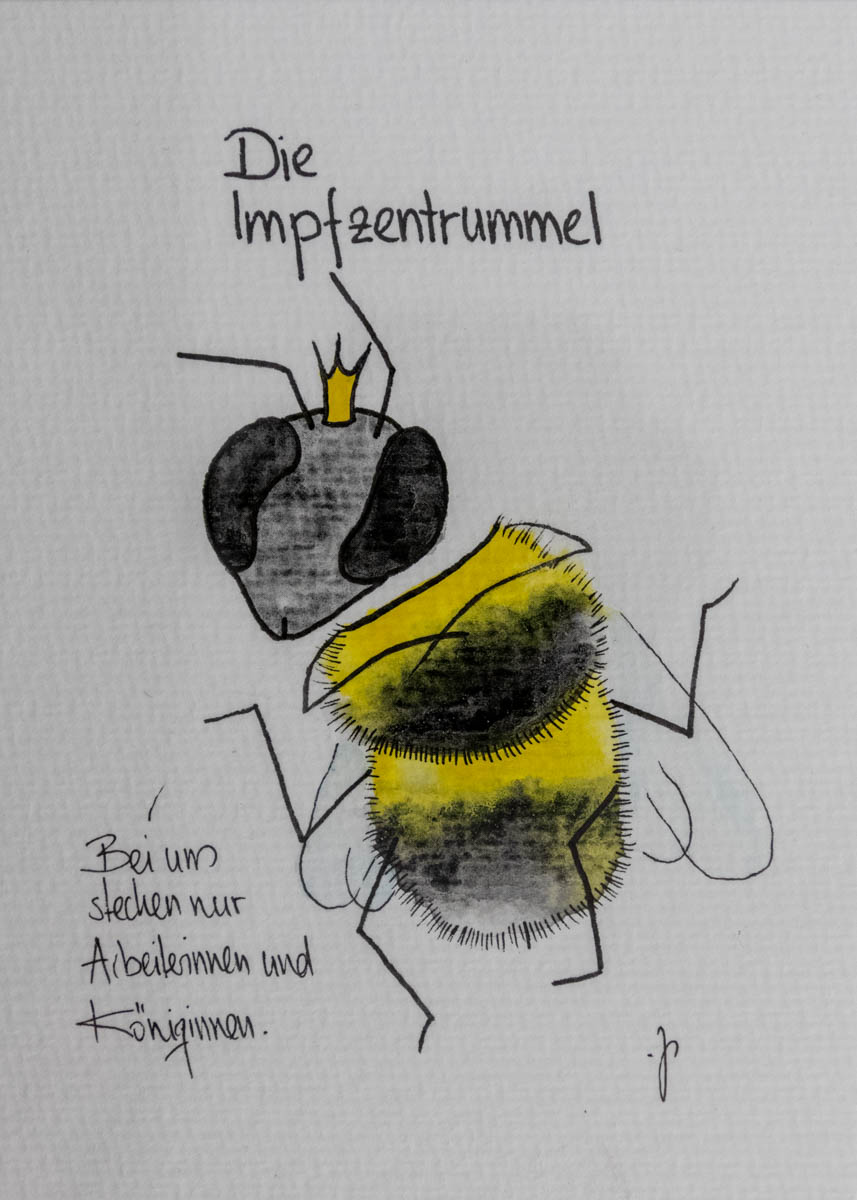 Die
Impfzentrummel
Bei uns
stechen nur
Arbeiterinnen und
Königinnen.